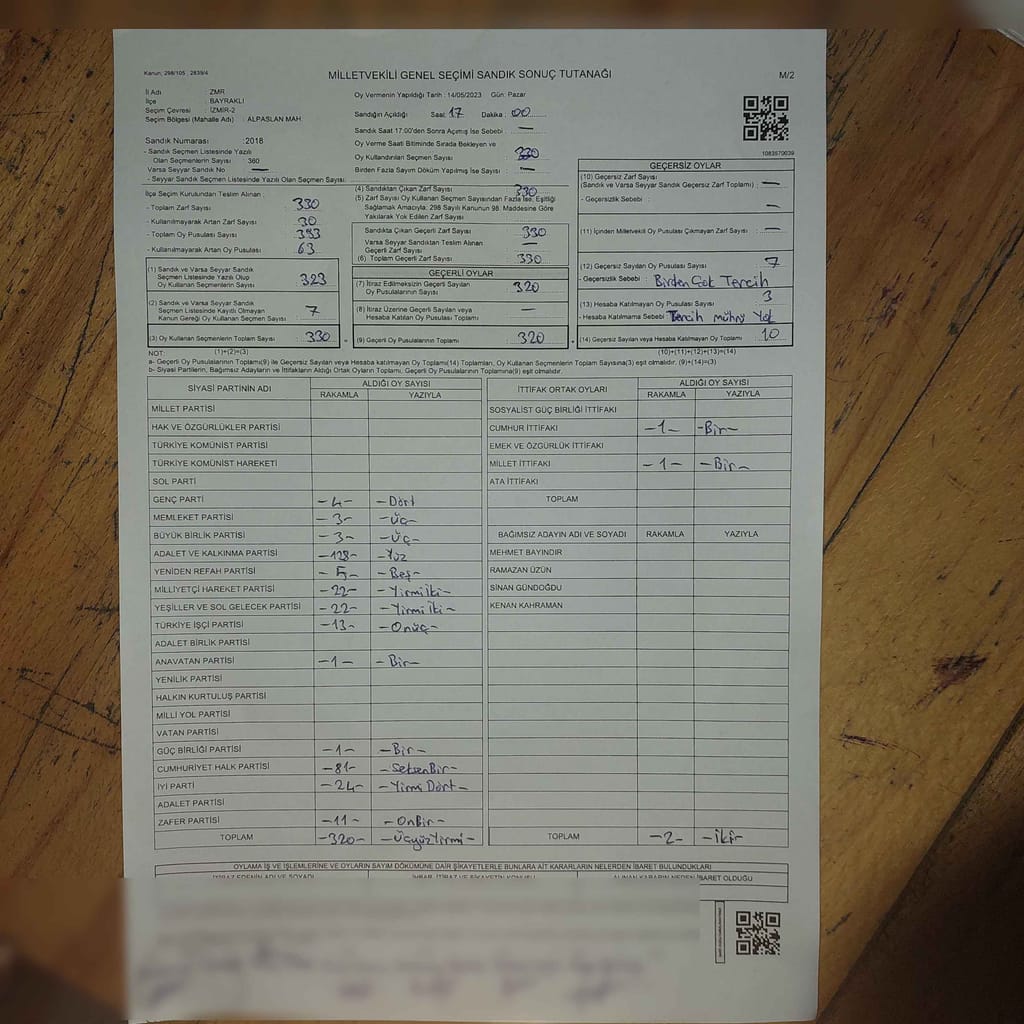 Kanun, 298/105 , 2839/4
MİLLETVEKİLİ GENEL SEÇİMİ SANDIK SONUÇ TUTANAĞI
M/2
İl Adı : ZMR
İlçe : BAYRAKLI
Seçim Çevresi : İZMİR-2
Seçim Bölgesi (Mahalle Adı) : ALPASLAN MAH.
Sandık Numarası :2018
- Sandık Seçmen Listesinde Yazılı
Olan Seçmenlerin Sayısı : 360
Varsa Seyyar Sandık No : —
- Seyyar Sandık Seçmen Listesinde Yazılı Olan Seçmen Sayısı:
İlçe Seçim Kurulundan Teslim Alınan :
- Toplam Zarf Sayısı : 330
- Kullanılmayarak Artan Zarf Sayısı : 30
- Toplam Oy Pusulası Sayısı : 393
- Kullanılmayarak Artan Oy Pusulası : 63
(1) Sandık ve Varsa Seyyar Sandık
Seçmen Listesinde Yazılı Olup
Oy Kullanan Seçmenlerin Sayısı : 323
(2) Sandık ve Varsa Seyyar Sandık
Seçmen Listesinde Kayıtlı Olmayan
Kanun Gereği Oy Kullanan Seçmen Sayısı : 7
(3) Oy Kullanan Seçmenlerin Toplam Sayısı : 330
(1)+(2)=(3)
Oy Vermenin Yapıldığı Tarih : 14/05/2023 Gün: Pazar
Sandığın Açıldığı Saat: 17 Dakika : 00
Sandık Saat 17:00'den Sonra Açımış İse Sebebi : —
Oy Verme Saati Bitiminde Sırada Bekleyen ve
Oy Kullandırılan Seçmen Sayısı : 330
Birden Fazla Sayım Döküm Yapılmış İse Sayısı : —
(4) Sandıktan Çıkan Zarf Sayısı : 330
(5) Zarf Sayısı Oy Kullanan Seçmen Sayısından Fazla İse, Eşitliği
Sağlamak Amacıyla; 298 Sayılı Kanunun 98. Maddesine Göre
Yakılarak Yok Edilen Zarf Sayısı :
Sandıkta Çıkan Geçerli Zarf Sayısı : 330
Varsa Seyyar Sandıktan Teslim Alınan
Geçerli Zarf Sayısı : —
(6) Toplam Geçerli Zarf Sayısı : 330
GEÇERLİ OYLAR
(7) İtiraz Edilmeksizin Geçerli Sayılan
Oy Pusulalarının Sayısı : 320
(8) İtiraz Üzerine Geçerli Sayılan veya
Hesaba Katılan Oy Pusulası Toplamı : —
(9) Geçerli Oy Pusulalarının Toplamı : 320
1083570039
GEÇERSİZ OYLAR
(10) Geçersiz Zarf Sayısı
(Sandık ve Varsa Seyyar Sandık Geçersiz Zarf Toplamı) : —
- Geçersizlik Sebebi : —
(11) İçinden Milletvekili Oy Pusulası Çıkmayan Zarf Sayısı : —
(12) Geçersiz Sayılan Oy Pusulası Sayısı : 7
- Geçersizlik Sebebi : Birden Çok Tercih
(13) Hesaba Katılmayan Oy Pusulası Sayısı : 3
- Hesaba Katılmama Sebebi : Tercih mührü Yok
(14) Geçersiz Sayılan veya Hesaba Katılmayan Oy Toplamı : 10
(10)+(11)+(12)+(13)=(14)
NOT:
a- Geçerli Oy Pusulalarının Toplamı(9) ile Geçersiz Sayılan veya Hesaba katılmayan Oy Toplamı(14) Toplamları, Oy Kullanan Seçmenlerin Toplam Sayısına(3) eşit olmalıdır. (9)+(14)=(3)
b- Siyasi Partilerin, Bağımsız Adayların ve İttifakların Aldığı Ortak Oyların Toplamı, Geçerli Oy Pusulalarının Toplamına(9) eşit olmalıdır.
SİYASİ PARTİNİN ADI ALDIĞI OY SAYISI
RAKAMLA YAZIYLA
MİLLET PARTİSİ
HAK VE ÖZGÜRLÜKLER PARTİSİ
TÜRKİYE KOMÜNİST PARTİSİ
TÜRKİYE KOMÜNİST HAREKETİ
SOL PARTİ
GENÇ PARTİ -4- -Dört
MEMLEKET PARTİSİ -3- -Üç-
BÜYÜK BİRLİK PARTİSİ -3- -Üç-
ADALET VE KALKINMA PARTİSİ -128- -Yüz
YENİDEN REFAH PARTİSİ -5- -Beş-
MİLLİYETÇİ HAREKET PARTİSİ -22- -Yirmiİki-
YEŞİLLER VE SOL GELECEK PARTİSİ -22- -Yirmiİki-
TÜRKİYE İŞÇİ PARTİSİ -13- -Onüç-
ADALET BİRLİK PARTİSİ
ANAVATAN PARTİSİ -1- -Bir-
YENİLİK PARTİSİ
HALKIN KURTULUŞ PARTİSİ
MİLLİ YOL PARTİSİ
VATAN PARTİSİ
GÜÇ BİRLİĞİ PARTİSİ -1- -Bir-
CUMHURİYET HALK PARTİSİ -81- -SeksenBir-
İYİ PARTİ -24- -Yirmi Dört-
ADALET PARTİSİ
ZAFER PARTİSİ -11- -OnBir-
TOPLAM -320- -ÜçyüzYirmi-
İTTİFAK ORTAK OYLARI ALDIĞI OY SAYISI
RAKAMLA YAZIYLA
SOSYALİST GÜÇ BİRLİĞİ İTTİFAKI
CUMHUR İTTİFAKI -1- -Bir-
EMEK VE ÖZGÜRLÜK İTTİFAKI
MİLLET İTTİFAKI -1- -Bir-
ATA İTTİFAKI
TOPLAM
BAĞIMSIZ ADAYIN ADI VE SOYADI RAKAMLA YAZIYLA
MEHMET BAYINDIR
RAMAZAN ÜZÜN
SİNAN GÜNDOĞDU
KENAN KAHRAMAN
TOPLAM -2- -iki-
OYLAMA İŞ VE İŞLEMLERİNE VE OYLARIN SAYIM DÖKÜMÜNE DAİR ŞİKAYETLERLE BUNLARA AİT KARARLARIN NELERDEN İBARET BULUNDUKLARI
İTİRAZ EDENİN ADI VE SOYADI İHBAR, İTİRAZ VE ŞİKAYETİN KONUSU ALINAN KARARIN NEDEN İBARET OLDUĞU